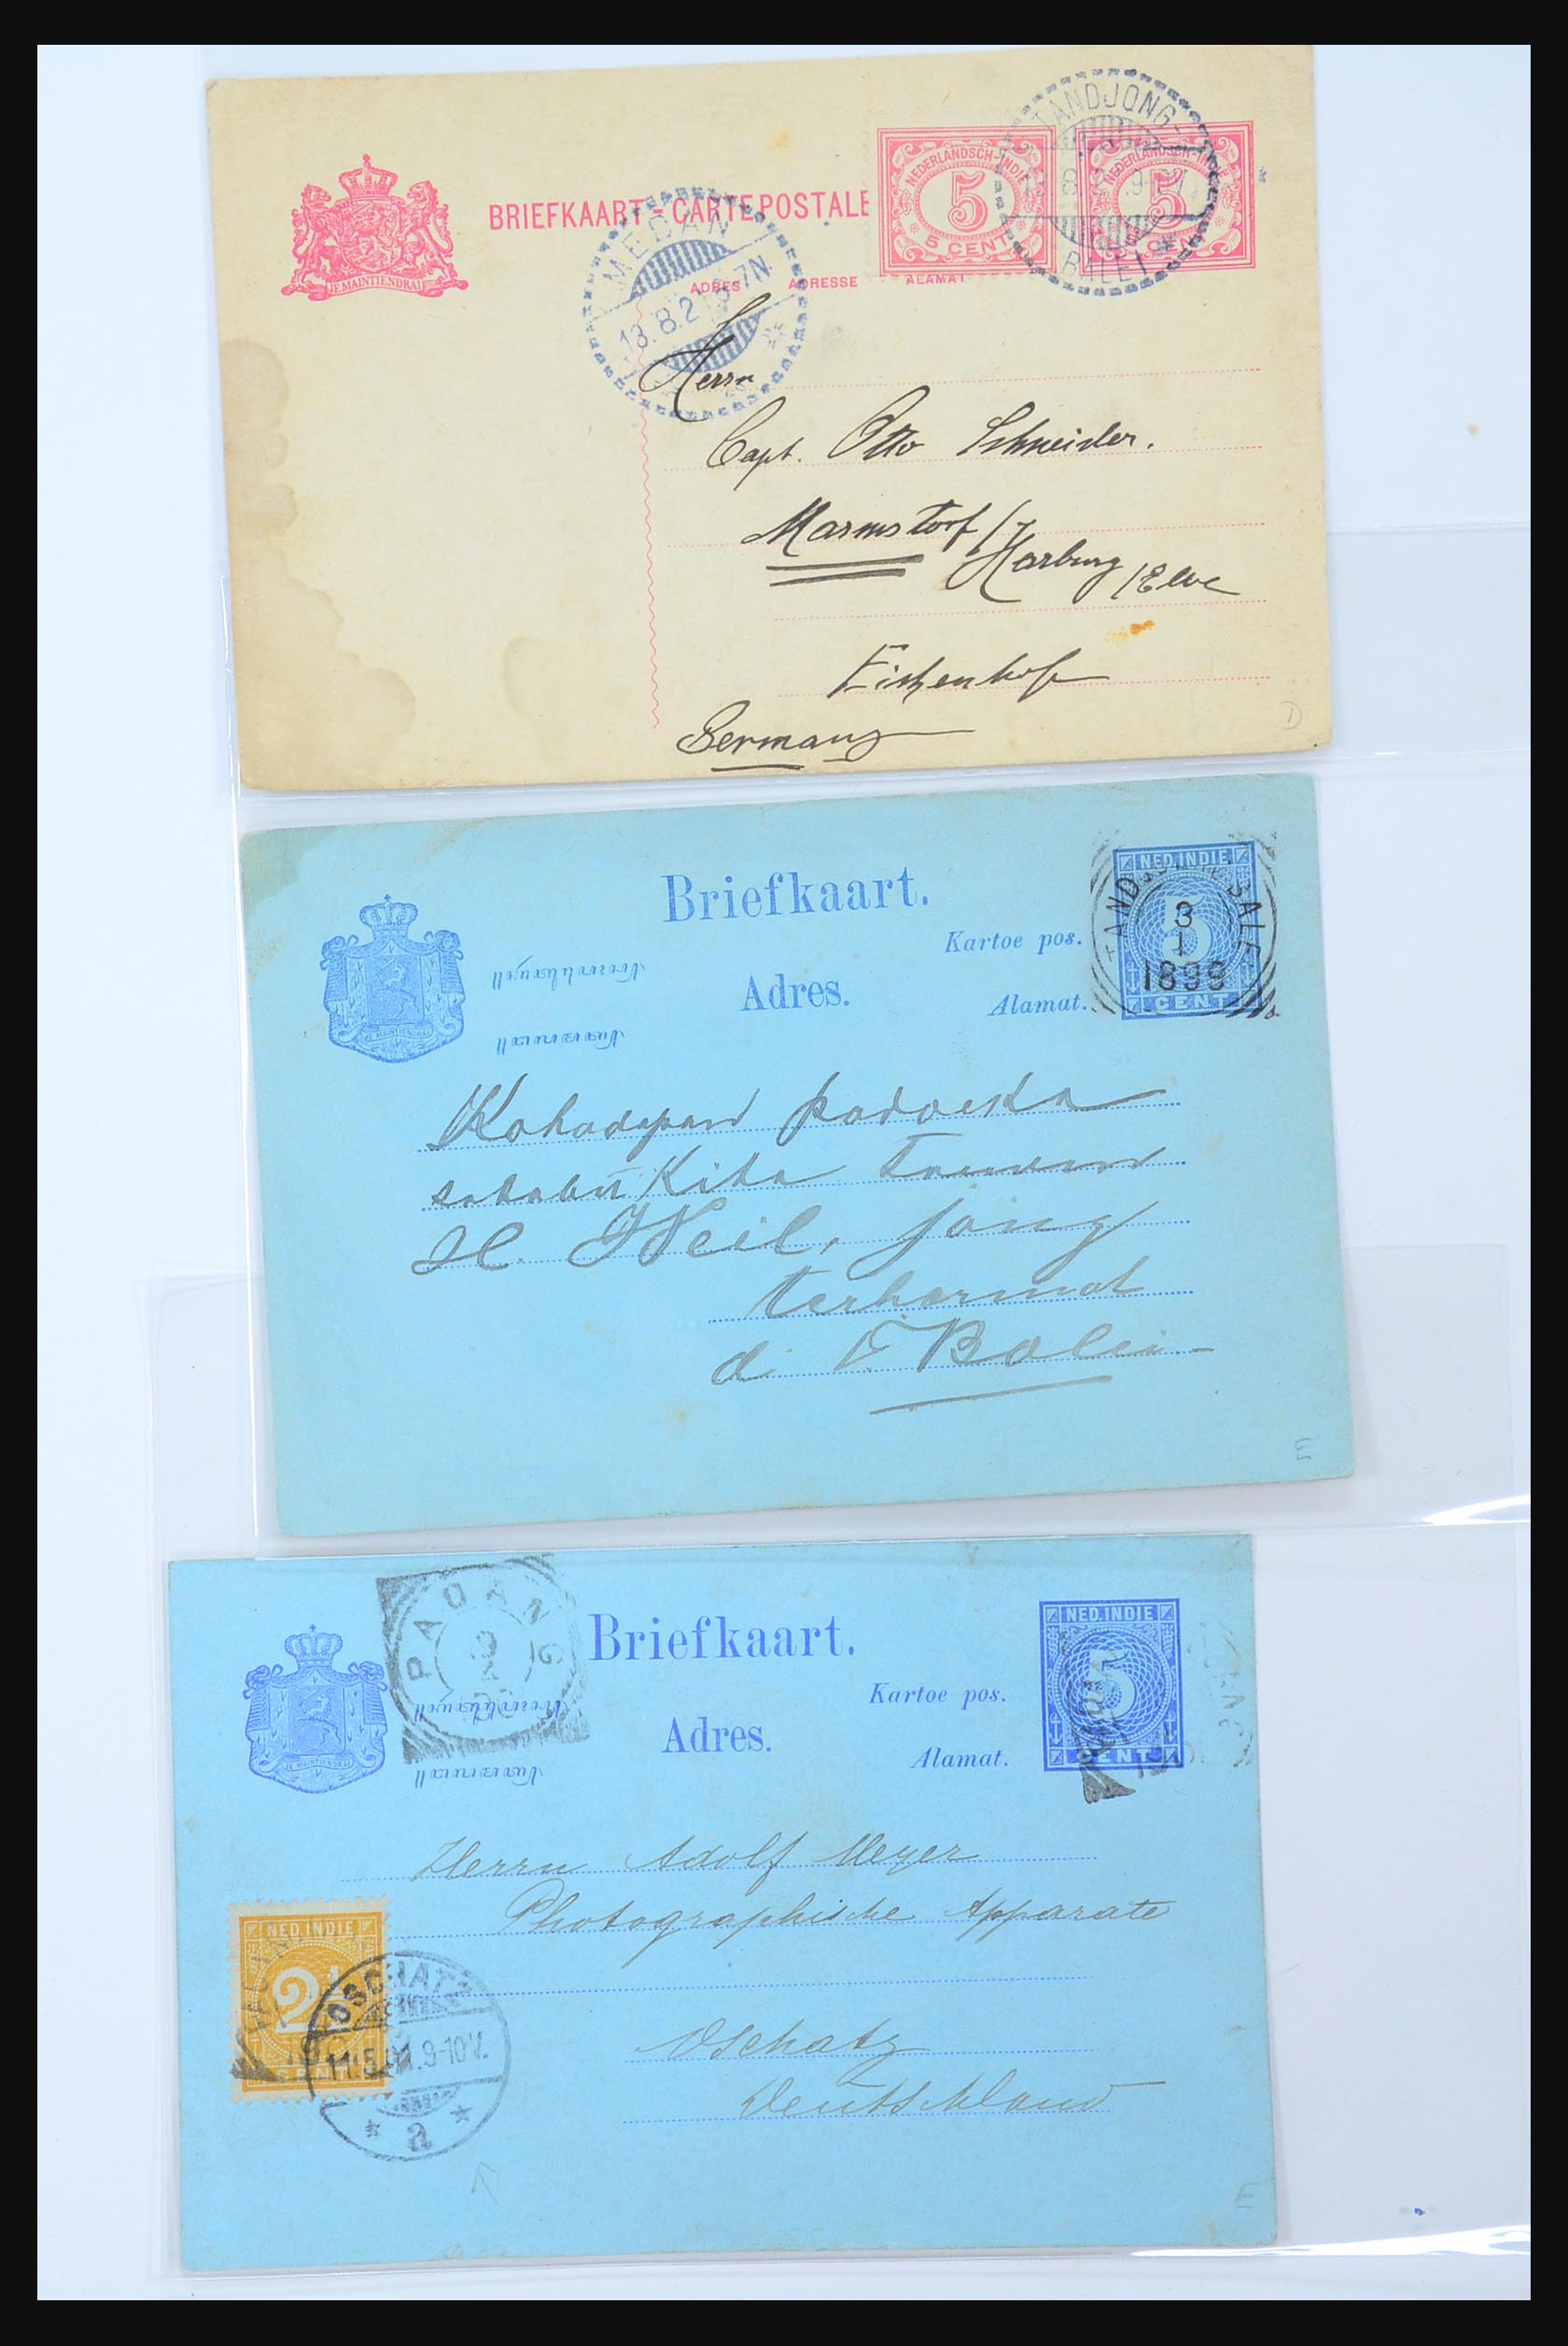 BRIEFKAART - CARTE POSTALE
NEDERLANDSCH-INDIE
5
5 CENT
NEDERLANDSCH-INDIE
5
CENT
TANDJONG-
BALEI
JE MAINTIENDRAI
ADRES ADRESSE ALAMAT
MEDAN
13.8.2 7N
Herrn
Capt. Otto Schneider.
Marmstorf /
Harburg / Elbe
Eichenhof
Germany
D
Briefkaart.
NED. INDIE
5
CENT
TANDJ BALE
3
1
1899
Kartoe pos.
Adres.
Alamat.
JE MAINTIENDRAI
Kahadapan padoeka
sahabat Kita Touwan
H. Weil, jang
terhormat
di T. Balei
E
PADANG
Briefkaart.
NED. INDIE
5
CENT
Kartoe pos.
Adres.
Alamat.
JE MAINTIENDRAI
Herrn Adolf Meyer
Photographische Apparate
NED. INDIE
2½
CENT
OSCHATZ
11.5.01.9-10V.
* a *
Oschatz
Deutschland
E